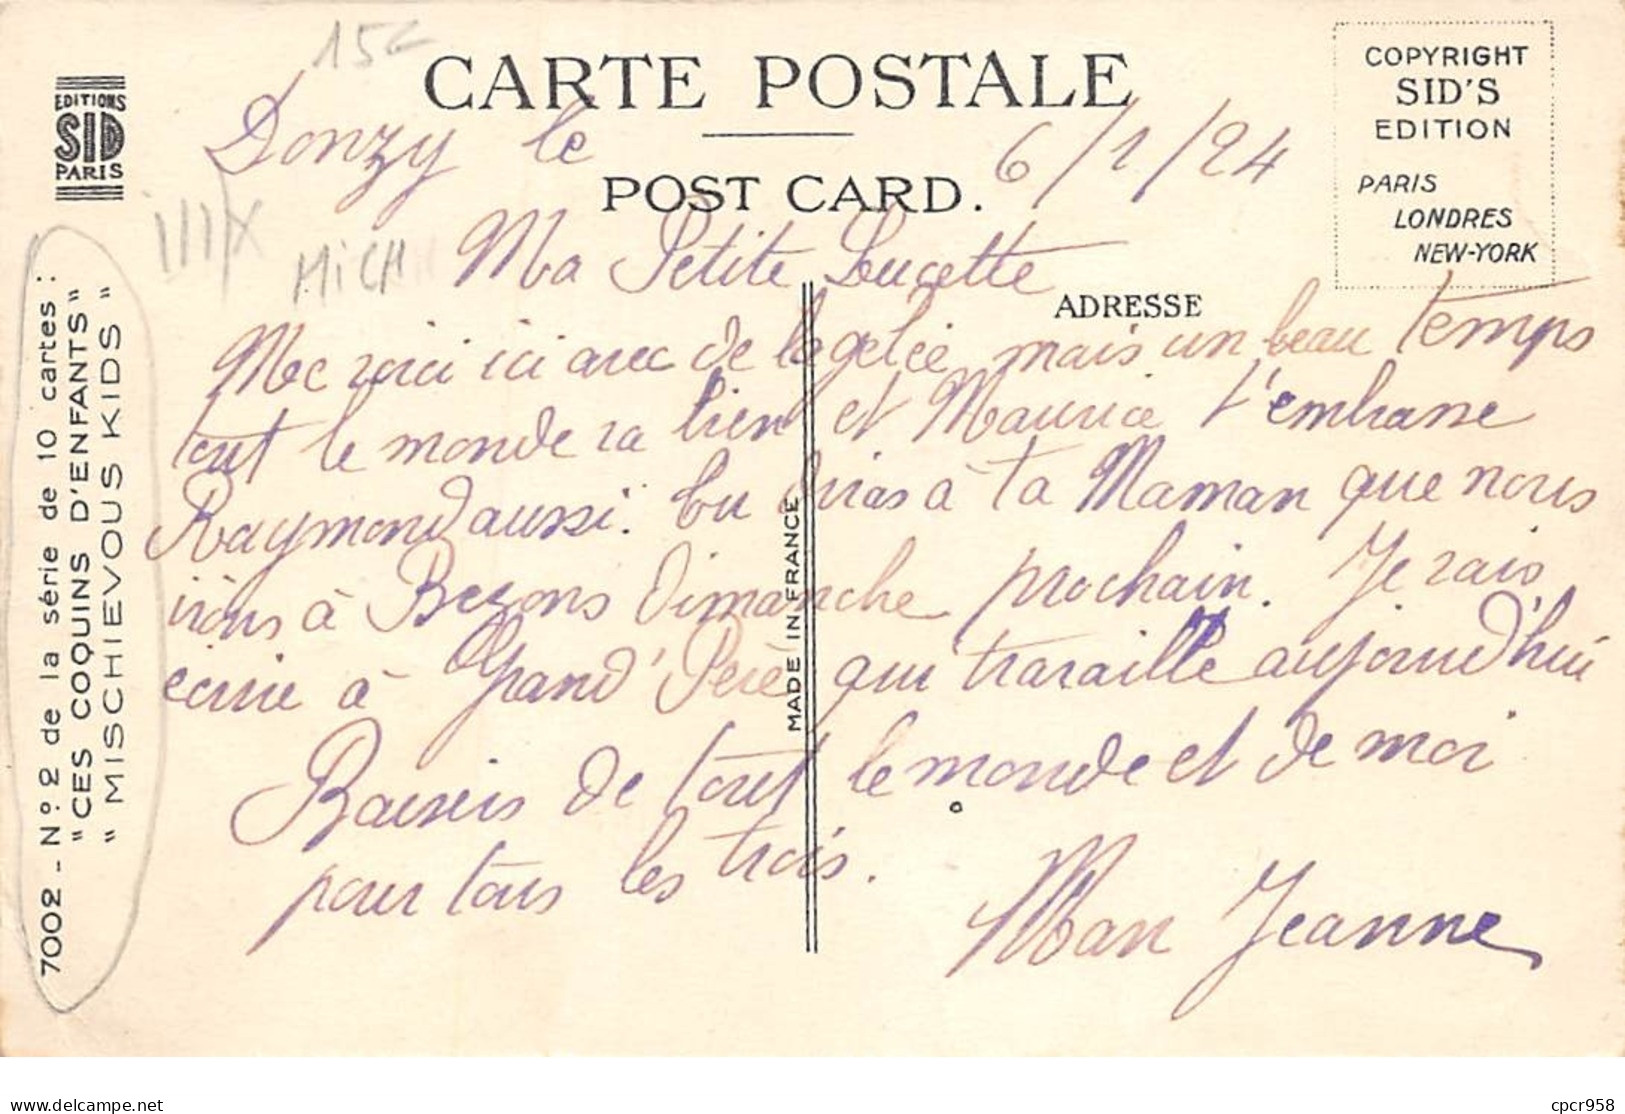 15c
CARTE POSTALE
POST CARD.
EDITIONS
SID
PARIS
COPYRIGHT
SID'S
EDITION
PARIS
LONDRES
NEW-YORK
Donzy le 6/1/24
MICH
Ma Petite Lucette
ADRESSE
Me voici ici avec de la gelée mais un beau temps
tout le monde va bien et Maurice t'embrasse
Raymond aussi. tu diras à ta Maman que nous
irons à Bezons Dimanche prochain. Je vais
écrire à Grand'Père qui travaille aujourd'hui
Baisers de tout le monde et de moi
pour tous les trois.
Man Jeanne
MADE IN FRANCE
7002 - No. 2 de la série de 10 cartes :
"CES COQUINS D'ENFANTS"
"MISCHIEVOUS KIDS"
delcampe.net
cpcr958